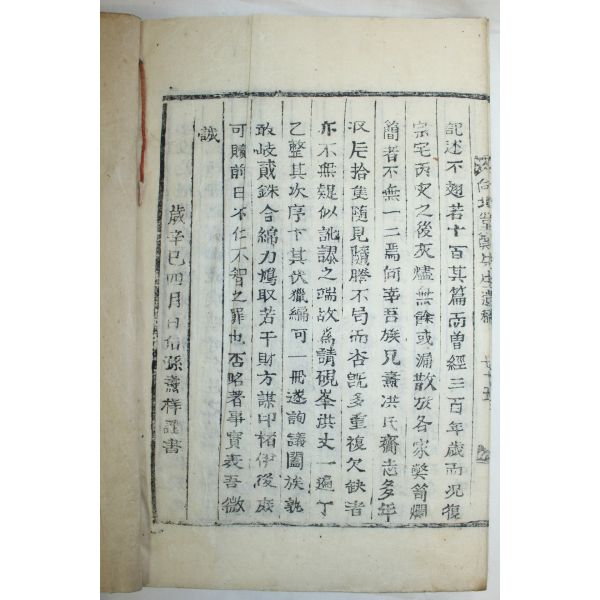 記述不翅若十百其篇而曽經三百年歲而况復
宗宅丙灾之後灰燼無餘或漏散放各家弊笥爛
簡者不無一二焉何幸吾族兄 洪氏齎志多年
片拾隻隨見隨謄不局而杏旣多重複欠缺者
亦不無疑似訛謬之端故爲請硯峯洪丈一遍丁
乙整其次序下其伏獵編可一冊遂詢議闔族孰
敢歧貳銖合綿力鳩取若干財方謀印榟伊後庶
可贖前日不仁不智之罪也否略著事實表吾微
誠
歲辛巳四月日 孫 謹書
先生遺稿